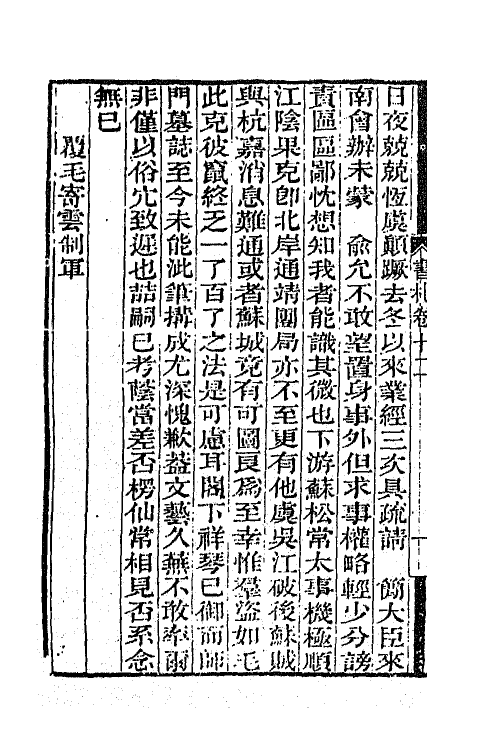 書札卷十二
日夜兢兢恆虞顚蹶去冬以來業經三次具疏請　簡大臣來
南會辦未蒙　俞允不敢望置身事外但求事權略輕少分謗
責區區鄙忱想知我者能識其微也下游蘇松常太事機極順
江陰果克卽北岸通靖團局亦不至更有他虞吳江破後蘇賊
與杭嘉消息難通或者蘇城竟有可圖艮爲至幸惟羣盜如毛
此克彼竄終乏一了百了之法是可慮耳閣下祥琴已御而師
門墓誌至今未能泚筆搆成尤深愧歉葢文藝久蕪不敢率爾
非僅以俗宂致遲也喆嗣已考蔭當差否楞仙常相見否系念
無已
覆毛寄雲制軍